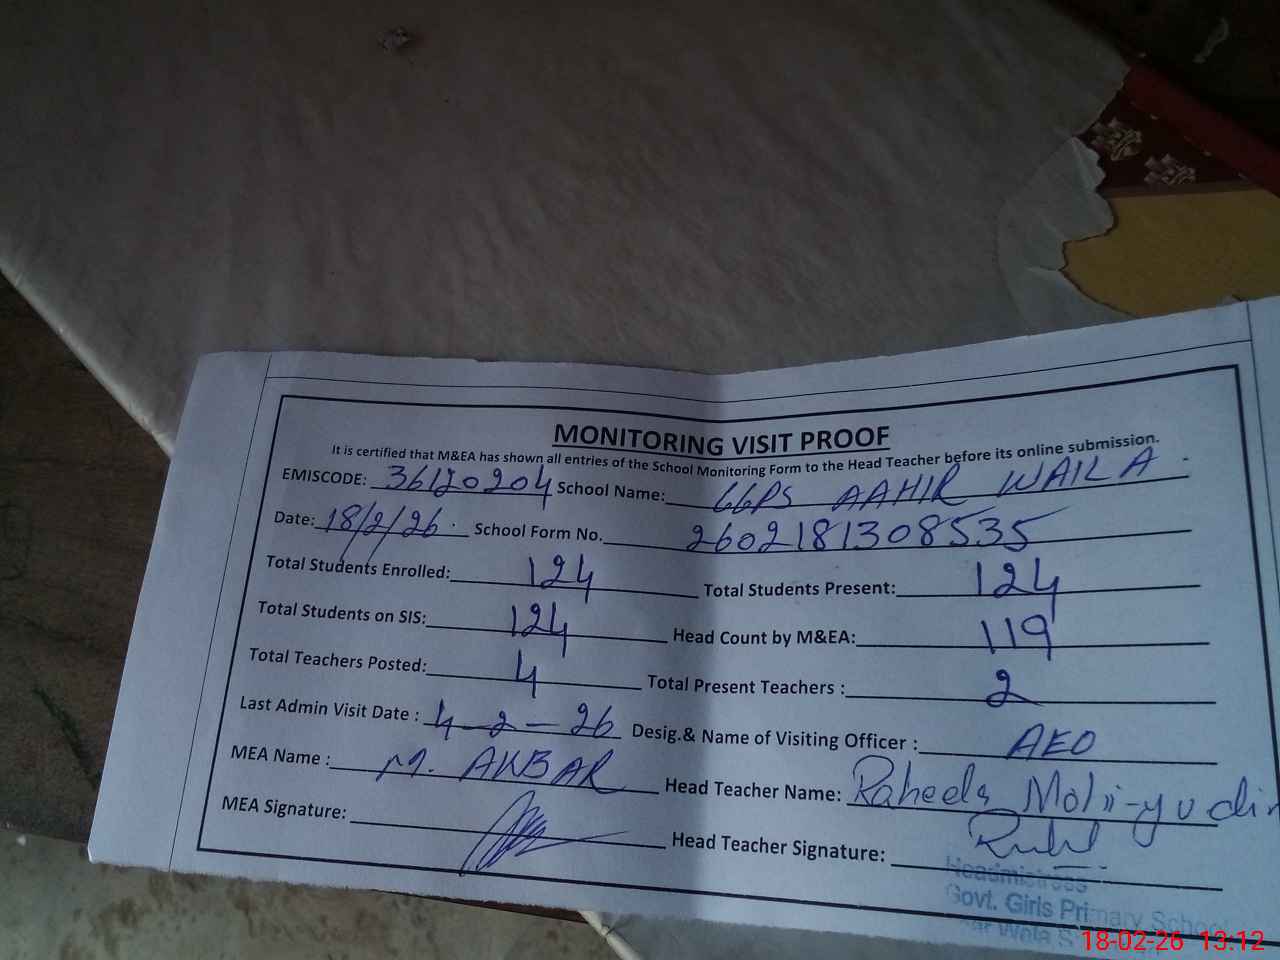 MONITORING VISIT PROOF
It is certified that M&EA has shown all entries of the School Monitoring Form to the Head Teacher before its online submission.
EMISCODE: 36120204 School Name: GGPS AAHIR WAILA
Date: 18/2/26 School Form No. 2602181308535
Total Students Enrolled: 124 Total Students Present: 124
Total Students on SIS: 124 Head Count by M&EA: 119
Total Teachers Posted: 4 Total Present Teachers : 2
Last Admin Visit Date : 4-2-26 Desig.& Name of Visiting Officer : AEO
MEA Name : M. AKBAR Head Teacher Name: Raheela Mohi-yudin
MEA Signature: Head Teacher Signature:
Headmistress
Govt. Girls Primary School
18-02-26 13:12